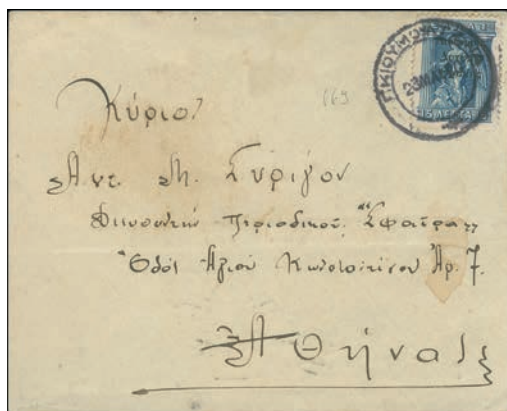 ΓΚΙΟΥΜΟΥΛΤΖΙΝΑ
15 ΛΕΠΤΑ
169
Κύριον
Αντ. Μ. Συρίγον
Διευθυντήν Περιοδικού "Σφαίρα"
Οδός Αγίου Κωνσταντίνου Αρ. 7.
Αθήνας